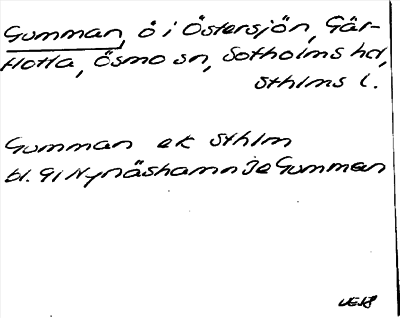 Gumman, ö i Östersjön, Går-
flotta, Ösmo sn, Sotholms hd,
Sthlms l.
Gumman ek Sthlm
bl. 9I Nynäshamn Je Gumman